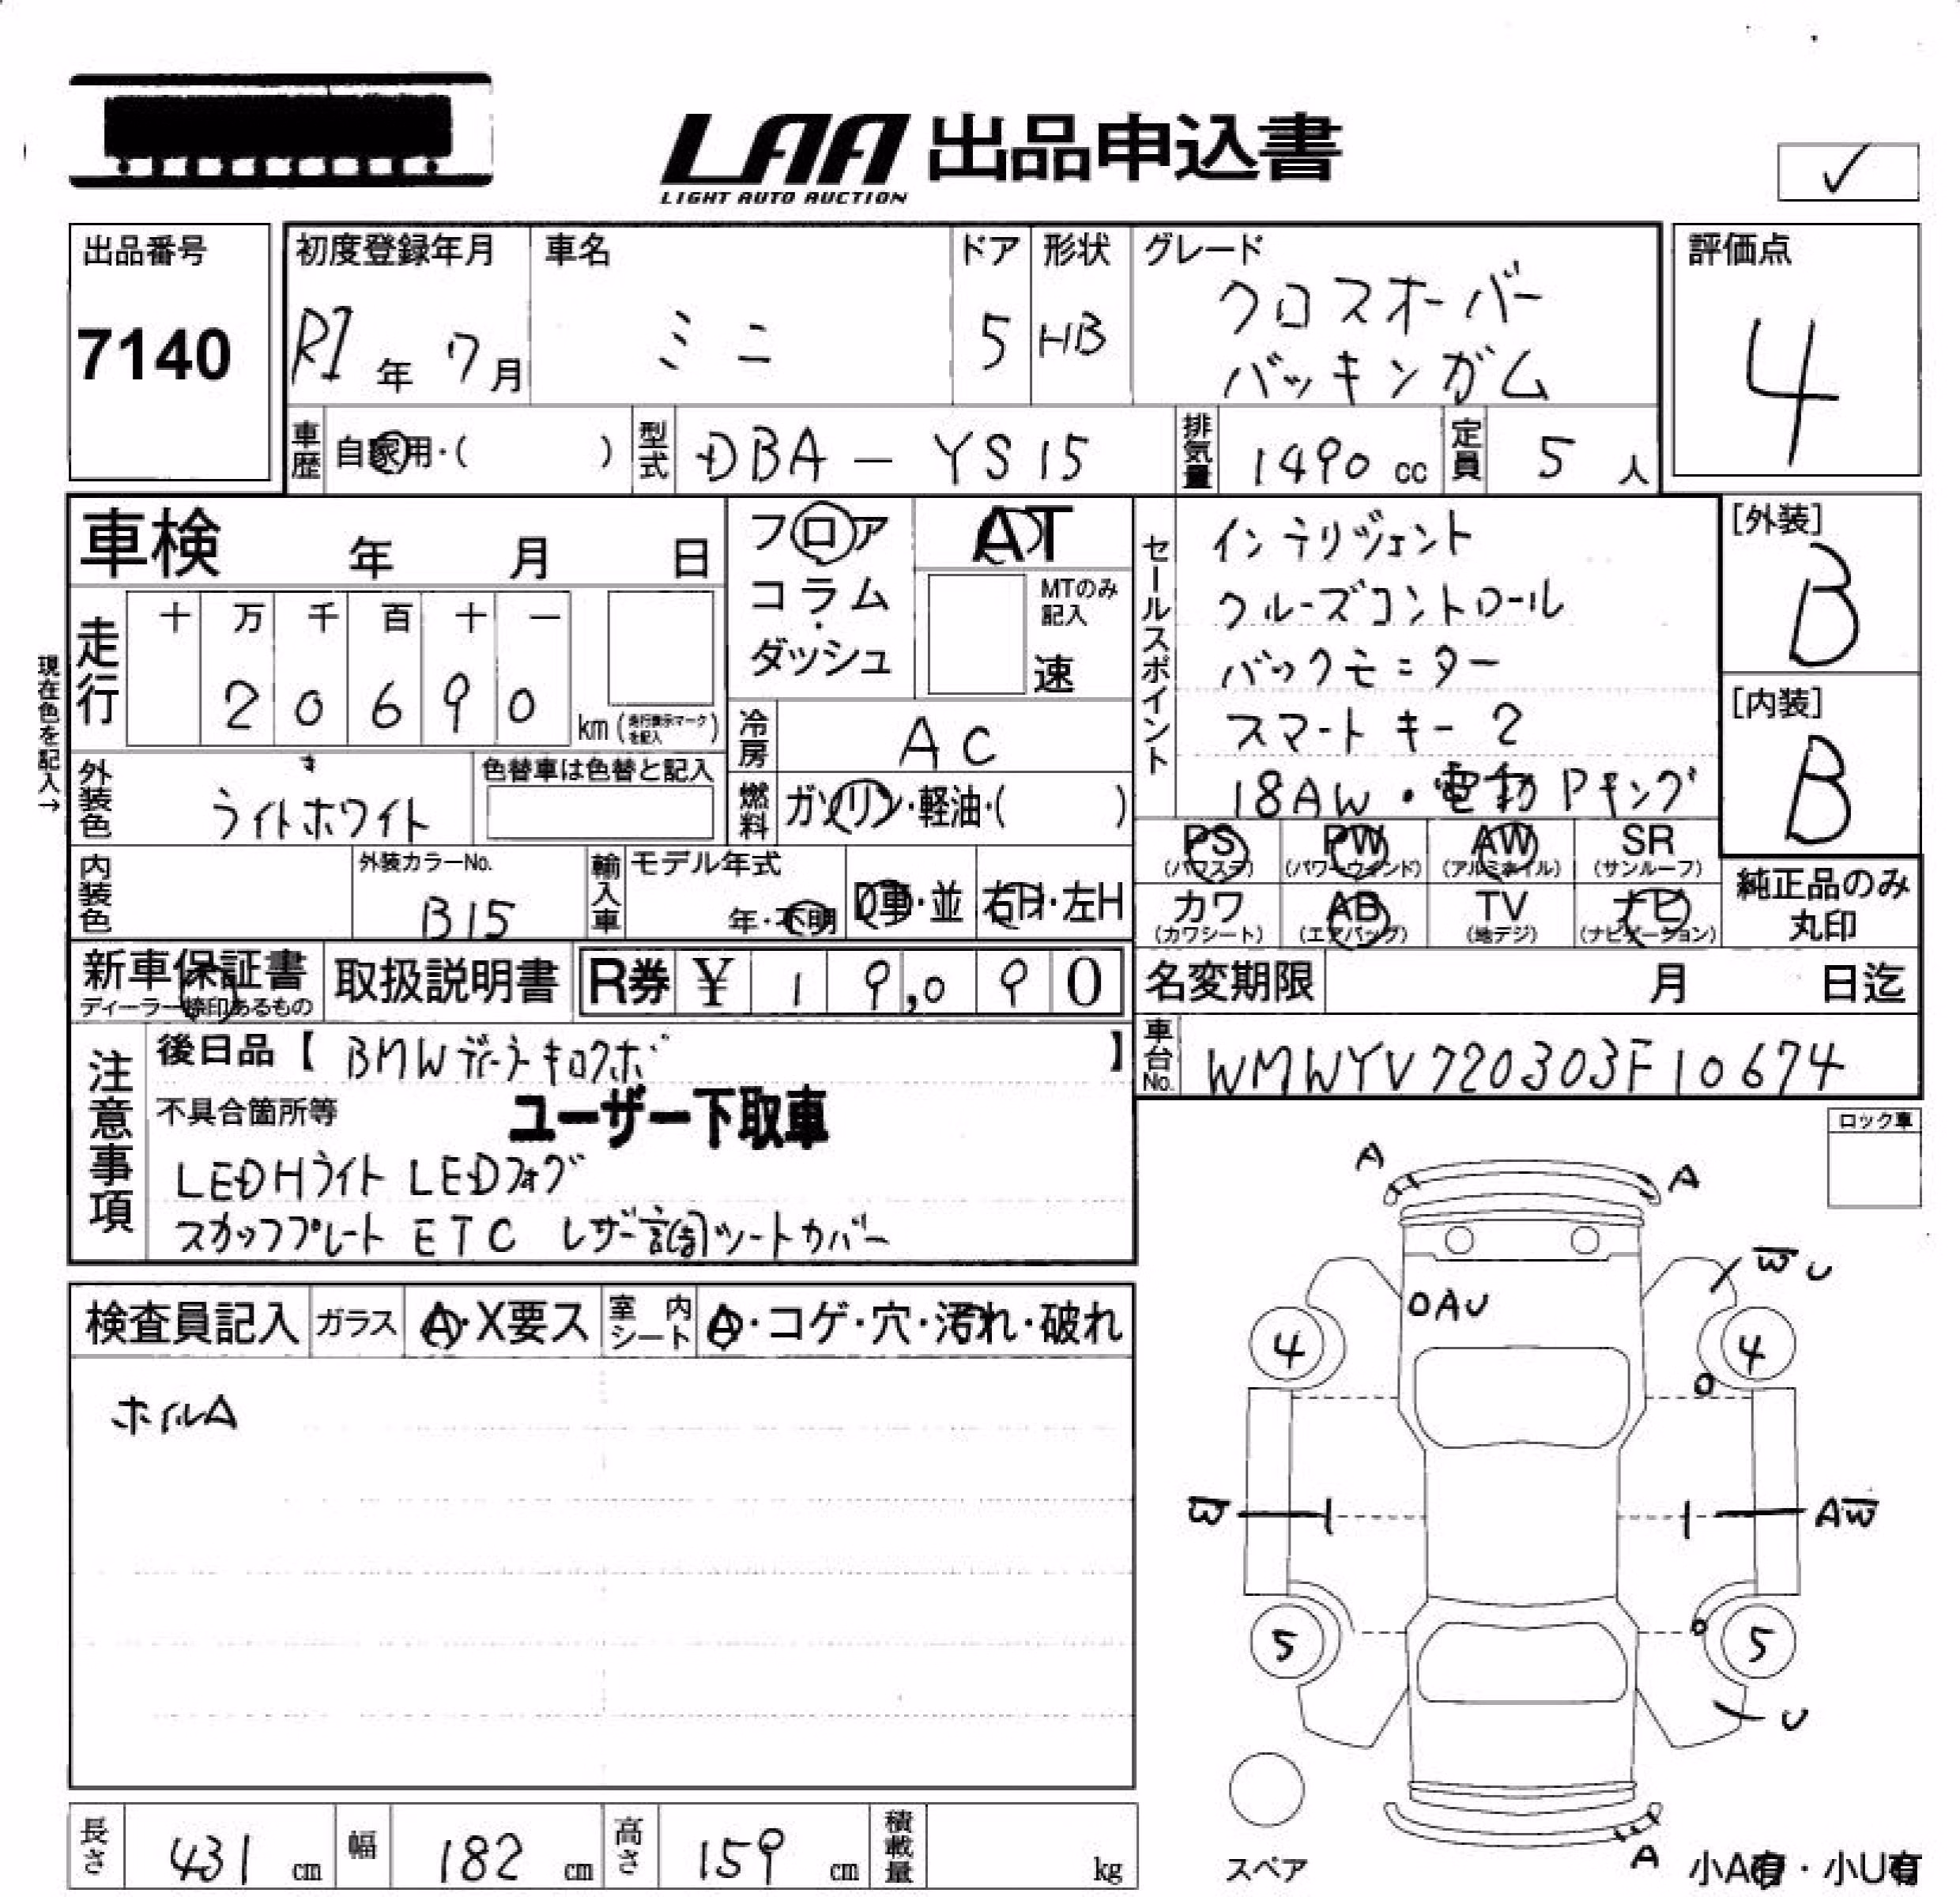 LAA 出品申込書
LIGHT AUTO AUCTION
✓
出品番号
7140
初度登録年月
R1年 7月
車名
ミニ
ドア
5
形状
HB
グレード
クロスオーバー
バッキンガム
評価点
4
車歴
自家用・( )
型式
DBA - YS15
排気量
1490 cc
定員
5 人
車検 年 月 日
フロア
コラム
・
ダッシュ
AT
MTのみ
記入
速
セールスポイント
インテリジェント
クルーズコントロール
バックモニター
スマートキー2
18AW・電動Pキング
[外装]
B
[内装]
B
現在色を記入→
走行
十 万 千 百 十 一
2 0 6 9 0
km (走行表示マークを記入)
冷房
AC
外装色
ライトホワイト
色替車は色替と記入
燃料
ガソリン・軽油・( )
PS
(パワステ)
PW
(パワーウインド)
AW
(アルミホイル)
SR
(サンルーフ)
カワ
(カワシート)
AB
(エアバッグ)
TV
(地デジ)
ナビ
(ナビゲーション)
純正品のみ
丸印
内装色
外装カラーNo.
B15
輸入車
モデル年式
年・不明
D車・並
右H・左H
新車保証書
ディーラー捺印あるもの
取扱説明書
R券 ¥ 19,090
名変期限 月 日迄
車台No.
WMWYV720303F10674
注意事項
後日品【 BMWディーラーキロクボ 】
不具合箇所等
ユーザー下取車
LEDHライト LEDフォグ
スカッフプレート ETC レザー調シートカバー
ロック車
検査員記入
ガラス
A・X要ス
室内シート
A・コゲ・穴・汚れ・破れ
ホイルA
A
A
W U
OAU
4
4
W
AW
5
5
U
A
スペア
小A有・小U有
長さ
431 cm
幅
182 cm
高さ
159 cm
積載量
kg